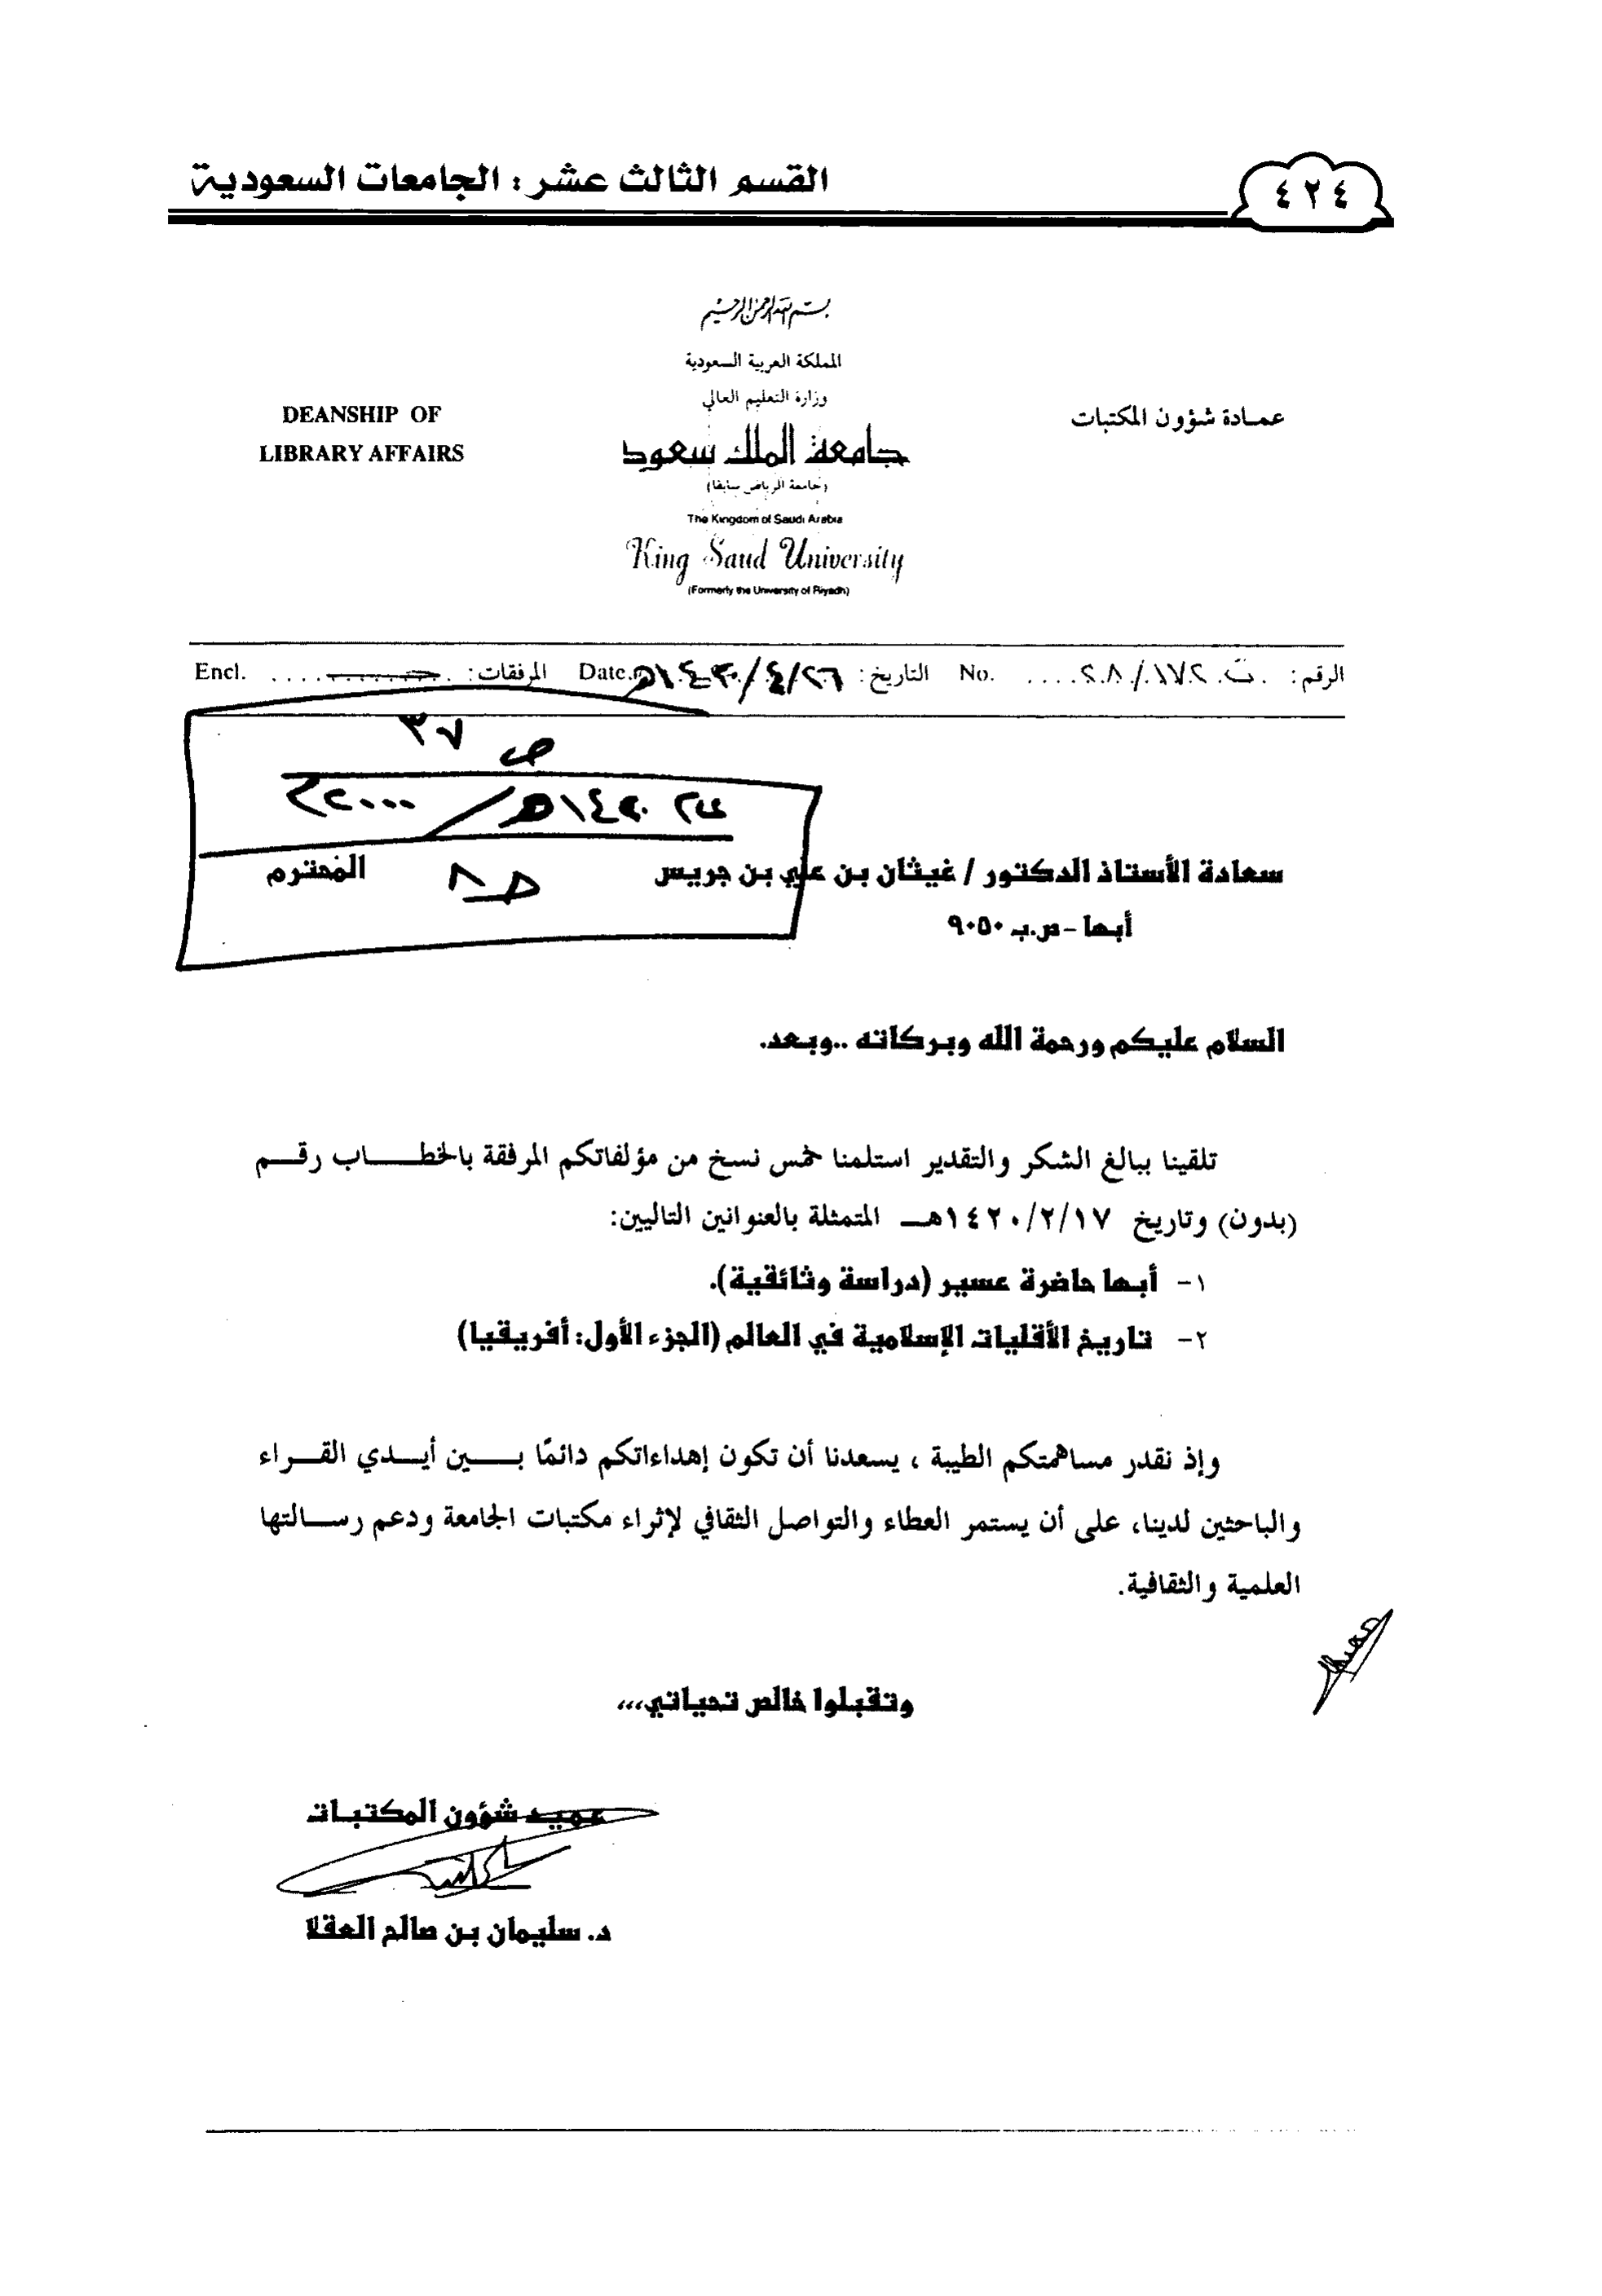 ٤٢٤
القسم الثالث عشر : الجامعات السعودية
بسم الله الرحمن الرحيم
المملكة العربية السعودية
وزارة التعليم العالي
جامعة الملك سعود
(جامعة الرياض سابقا)
The Kingdom of Saudi Arabia
King Saud University
(Formerly the University of Riyadh)
عمادة شؤون المكتبات
DEANSHIP OF
LIBRARY AFFAIRS
الرقم: No. التاريخ: ٢٦/٤/١٤٢٠هـ Date. المرفقات: Encl.
ص ٣٧
١٤٢٠هـ/٢٠٠٠
سعادة الأستاذ الدكتور / غيثان بن علي بن جريس المحترم
أبها - ص.ب ٩٠٥٠
السلام عليكم ورحمة الله وبركاته ..وبعد.
تلقينا ببالغ الشكر والتقدير استلمنا خمس نسخ من مؤلفاتكم المرفقة بالخطـــاب رقـم
(بدون) وتاريخ ١٤٢٠/٢/١٧هـ المتمثلة بالعنوانين التاليين:
١- أبها حاضرة عسير (دراسة وثائقية).
٢- تاريخ الأقليات الإسلامية في العالم (الجزء الأول: أفريقيا)
وإذ نقدر مساهمتكم الطيبة ، يسعدنا أن تكون إهداءاتكم دائمًا بــين أيــدي القــراء
والباحثين لدينا، على أن يستمر العطاء والتواصل الثقافي لإثراء مكتبات الجامعة ودعم رســالتها
العلمية والثقافية.
وتقبلوا خالص تحياتي،،،
عميد شؤون المكتبات
د. سليمان بن صالح العقلا